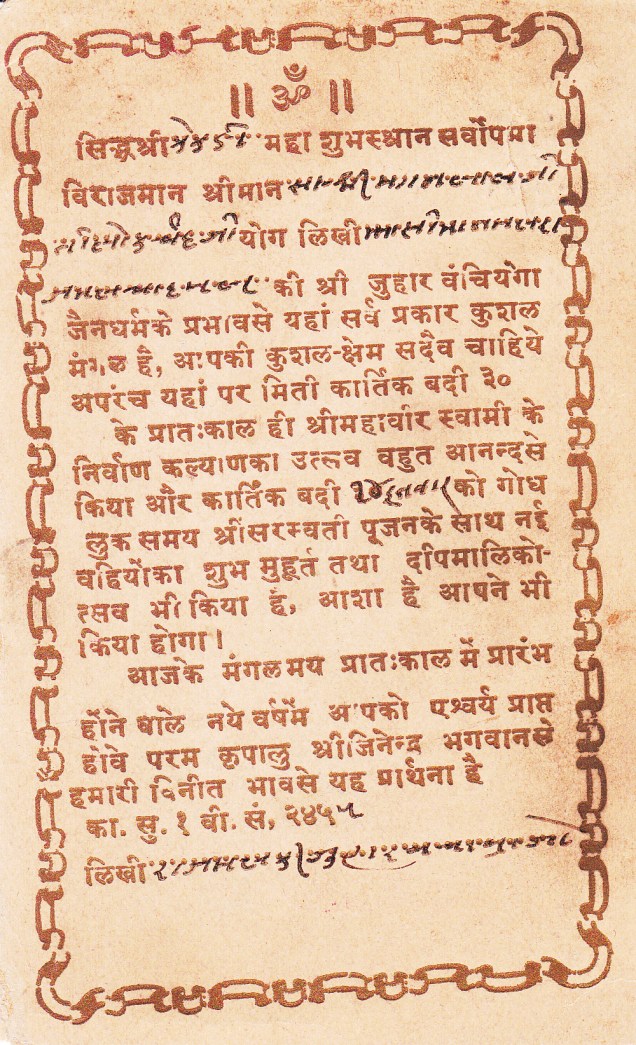 ॥ ॐ ॥
सिद्धश्री महा शुभस्थान सर्वोपमा
विराजमान श्रीमान
योग लिखी
की श्री जुहार वंचियेगा
जैनधर्मके प्रभावसे यहां सर्व प्रकार कुशल
मंगल है, आपकी कुशल-क्षेम सदैव चाहिये
अपरंच यहां पर मिती कार्तिक बदी ३०
के प्रातःकाल ही श्रीमहावीर स्वामी के
निर्वाण कल्याणका उत्सव बहुत आनन्दसे
किया और कार्तिक बदी को गोध
लुक समय श्रीसरस्वती पूजनके साथ नई
वहियोंका शुभ मुहूर्त तथा दीपमालिको-
त्सव भी किया है, आशा है आपने भी
किया होगा।
आजके मंगलमय प्रातःकाल में प्रारंभ
होंने वाले नये वर्षमें आपको एश्वर्य प्राप्त
होवे परम कृपालु श्रीजिनेन्द्र भगवानसे
हमारी विनीत भावसे यह प्रार्थना है
का. सु. १ वी. सं, २४५५
लिखी